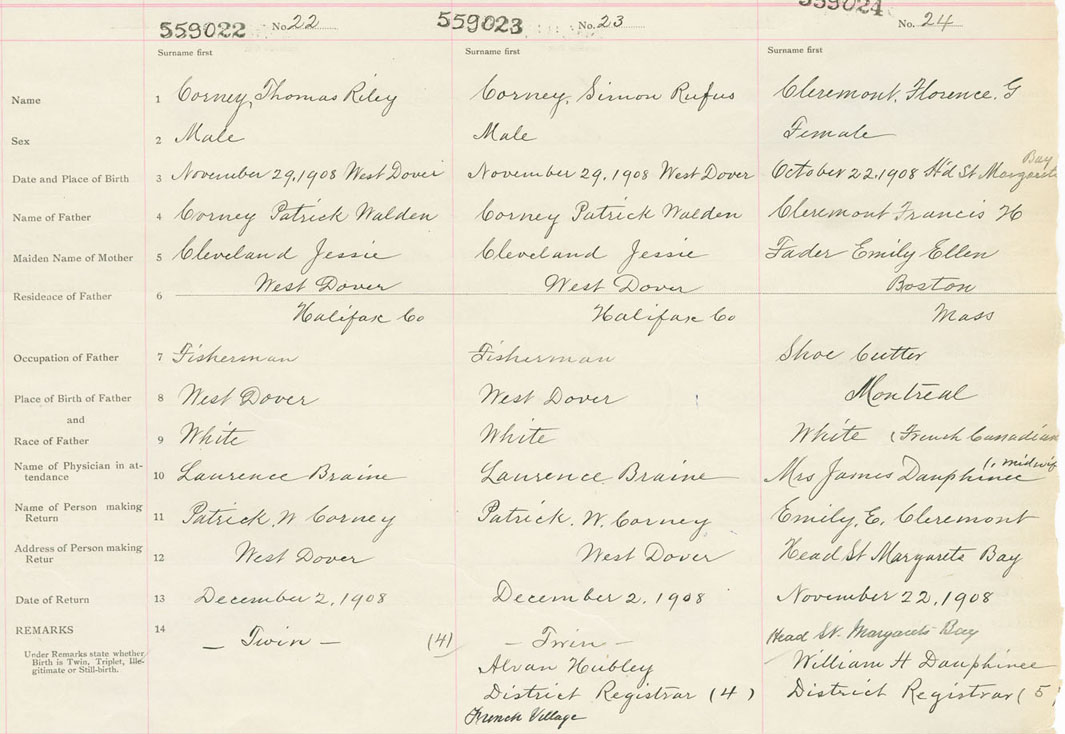 559022 No. 22 559023 No. 23 559024 No. 24
Surname first Surname first Surname first
Name 1 Corney, Thomas Riley Corney, Simon Rufus Cleremont, Florence. G
Sex 2 Male Male Female
Bay
Date and Place of Birth 3 November 29, 1908 West Dover November 29, 1908 West Dover October 22, 1908 H'd St Margarets
Name of Father 4 Corney Patrick Walden Corney Patrick Walden Cleremont Francis H
Maiden Name of Mother 5 Cleveland Jessie Cleveland Jessie Fader Emily Ellen
West Dover West Dover Boston
Residence of Father 6
Halifax Co Halifax Co Mass
Occupation of Father 7 Fisherman Fisherman Shoe Cutter
Place of Birth of Father 8 West Dover West Dover Montreal
and
Race of Father 9 White White White (French Canadian
Name of Physician in at- midwife
tendance 10 Laurence Braine Laurence Braine Mrs James Dauphinee
Name of Person making
Return 11 Patrick. W Corney Patrick. W. Corney Emily. E. Cleremont
Address of Person making
Retur 12 West Dover West Dover Head St Margarets Bay
Date of Return 13 December 2, 1908 December 2, 1908 November 22, 1908
REMARKS 14 — Twin — (4) — Twin — Head St. Margarets Bay
Under Remarks state whether
Birth is Twin, Triplet, Ille-
gitimate or Still-birth.
Alvan Hubley William H Dauphinee
District Registrar (4) District Registrar (5
French Village